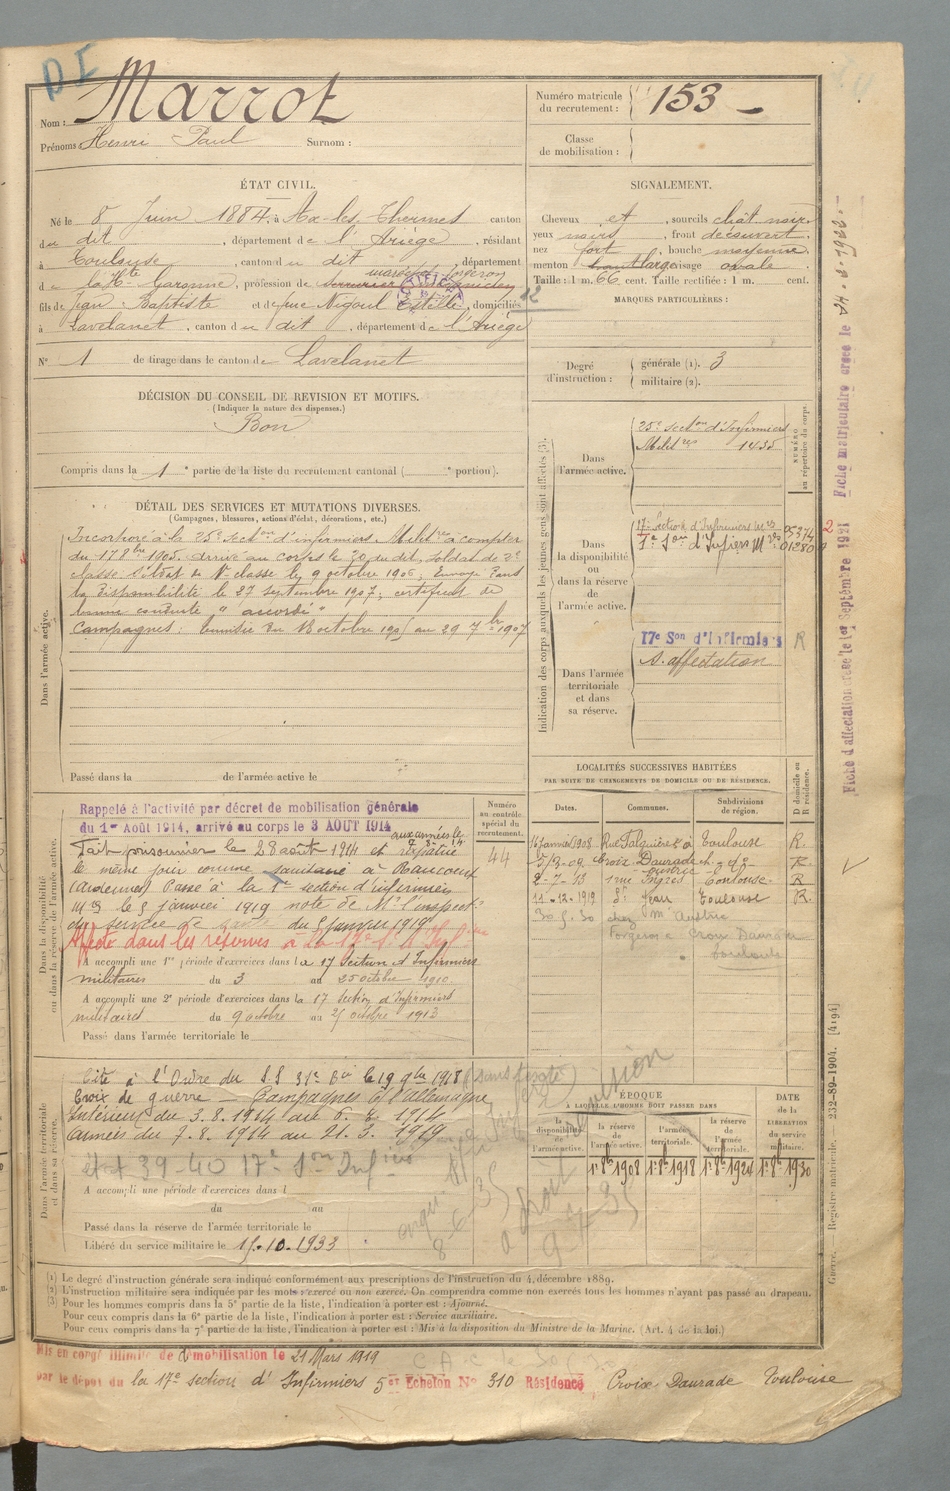 DI
Nom : Marrot
Prénoms : Henri Paul Surnom :
Numéro matricule du recrutement : 153
Classe de mobilisation :
ÉTAT CIVIL.
Né le 8 Juin 1884, à Ax-les-Thermes canton
du dit , département de l'Ariège , résidant
à Toulouse , canton du dit département
maréchal forgeron
de la Hte Garonne, profession de serrurier mécanicien
fils de Jean-Baptiste et de feue Nigoul Estelle, domiciliés
à Lavelanet , canton du dit , département de l'Ariège
No 1 de tirage dans le canton de Lavelanet
SIGNALEMENT.
Cheveux et , sourcils chât. noirs
yeux noirs , front découvert
nez fort , bouche moyenne
menton large visage ovale
Taille : 1 m. 66 cent. Taille rectifiée : 1 m. cent.
MARQUES PARTICULIÈRES :
Degré d'instruction : générale (1). 3
militaire (2).
DÉCISION DU CONSEIL DE REVISION ET MOTIFS.
(Indiquer la nature des dispenses.)
Bon
Compris dans la 1e partie de la liste du recrutement cantonal ( portion).
DÉTAIL DES SERVICES ET MUTATIONS DIVERSES.
(Campagnes, blessures, actions d'éclat, décorations, etc.)
Dans l'armée active.
Incorporé à la 25e Section d'infirmiers Militres à compter
du 17 8bre 1905. arrivé au corps le 30 du dit, soldat de 2e
classe. Soldat de 1re classe le 9 octobre 1906. Envoyé dans
la disponibilité le 27 septembre 1907, certificat de
bonne conduite "accordé"
Campagnes : 18 octobre 1905 au 29 7bre 1907
Passé dans la de l'armée active le
Indication des corps auxquels les jeunes gens sont affectés (3).
NUMÉRO au répertoire du corps.
Dans l'armée active.
25e Section d'Infirmiers
Militres 1435
Dans la disponibilité ou dans la réserve de l'armée active.
17e Section d'Infirmiers Mres
Dans l'armée territoriale et dans sa réserve.
17e Son d'Infirmiers R
S. affectation
LOCALITÉS SUCCESSIVES HABITÉES
PAR SUITE DE CHANGEMENTS DE DOMICILE OU DE RÉSIDENCE.
Dates. Communes. Subdivisions de région. D domicile ou R résidence.
16 janvier 1908 Rue Falguières à Toulouse R.
5/3-09 Croix Daurade ch. de R
2-7-13 1 rue Ingres Toulouse R
11-12-1919 Toulouse R.
30.5.30 chez Mr
forgeron Croix Daurade
Toulouse
Dans la disponibilité ou dans la réserve de l'armée active.
Numéro au contrôle spécial du recrutement.
44
Rappelé à l'activité par décret de mobilisation générale
du 1er Août 1914, arrivé au corps le 3 AOUT 1914
aux armées le
Fait prisonnier le 28 août 1914 et rapatrié
le même jour comme sanitaire à Raucourt
(Ardennes) Passé à la 1e section d'infirmiers
Mres le 5 janvier 1919 note de Mr l'inspectr
du service de santé du 5 janvier 1919
Affecté dans les réserves à la 17e
A accompli une 1re période d'exercices dans la 17 Section d'Infirmiers
militaires du 3 au 25 octobre 1910
A accompli une 2e période d'exercices dans la 17 section d'Infirmiers
militaires du 9 octobre au 25 octobre 1913
Passé dans l'armée territoriale le
Dans l'armée territoriale et dans sa réserve.
Cité à l'Ordre du S.S 31e le 19 9bre 1918
Croix de guerre — Campagnes C/ l'allemagne
Intérieur du 3.8.1914 au 6.8.1914
Armées du 7.8.1914 au 21.3.1919
39-40 17e Son
A accompli une période d'exercices dans l
du au
Passé dans la réserve de l'armée territoriale le
Libéré du service militaire le 15.10.1933
ÉPOQUE
À LAQUELLE L'HOMME DOIT PASSER DANS
la disponibilité de l'armée active. la réserve de l'armée active. l'armée territoriale. la réserve de l'armée territoriale.
DATE de la LIBÉRATION du service militaire.
1er 8bre 1908 1er 8bre 1918 1er 8bre 1924 1er 8bre 1930
(1) Le degré d'instruction générale sera indiqué conformément aux prescriptions de l'instruction du 4 décembre 1889.
(2) L'instruction militaire sera indiquée par les mots : exercé ou non exercé. On comprendra comme non exercés tous les hommes n'ayant pas passé au drapeau.
(3) Pour les hommes compris dans la 5e partie de la liste, l'indication à porter est : Ajourné.
Pour ceux compris dans la 6e partie de la liste, l'indication à porter est : Service auxiliaire.
Pour ceux compris dans la 7e partie de la liste, l'indication à porter est : Mis à la disposition du Ministre de la Marine. (Art. 4 de la loi.)
Mis en congé illimité de démobilisation le 21 Mars 1919
par le dépôt du la 17e section d'Infirmiers 5e Echelon No 310 Résidence Croix Daurade Toulouse
Fiche d'affectation créée le 1er Septembre 1921
Fiche matriculaire créée le
Guerre. — Registre matricule. 232-89-1904. [4194]